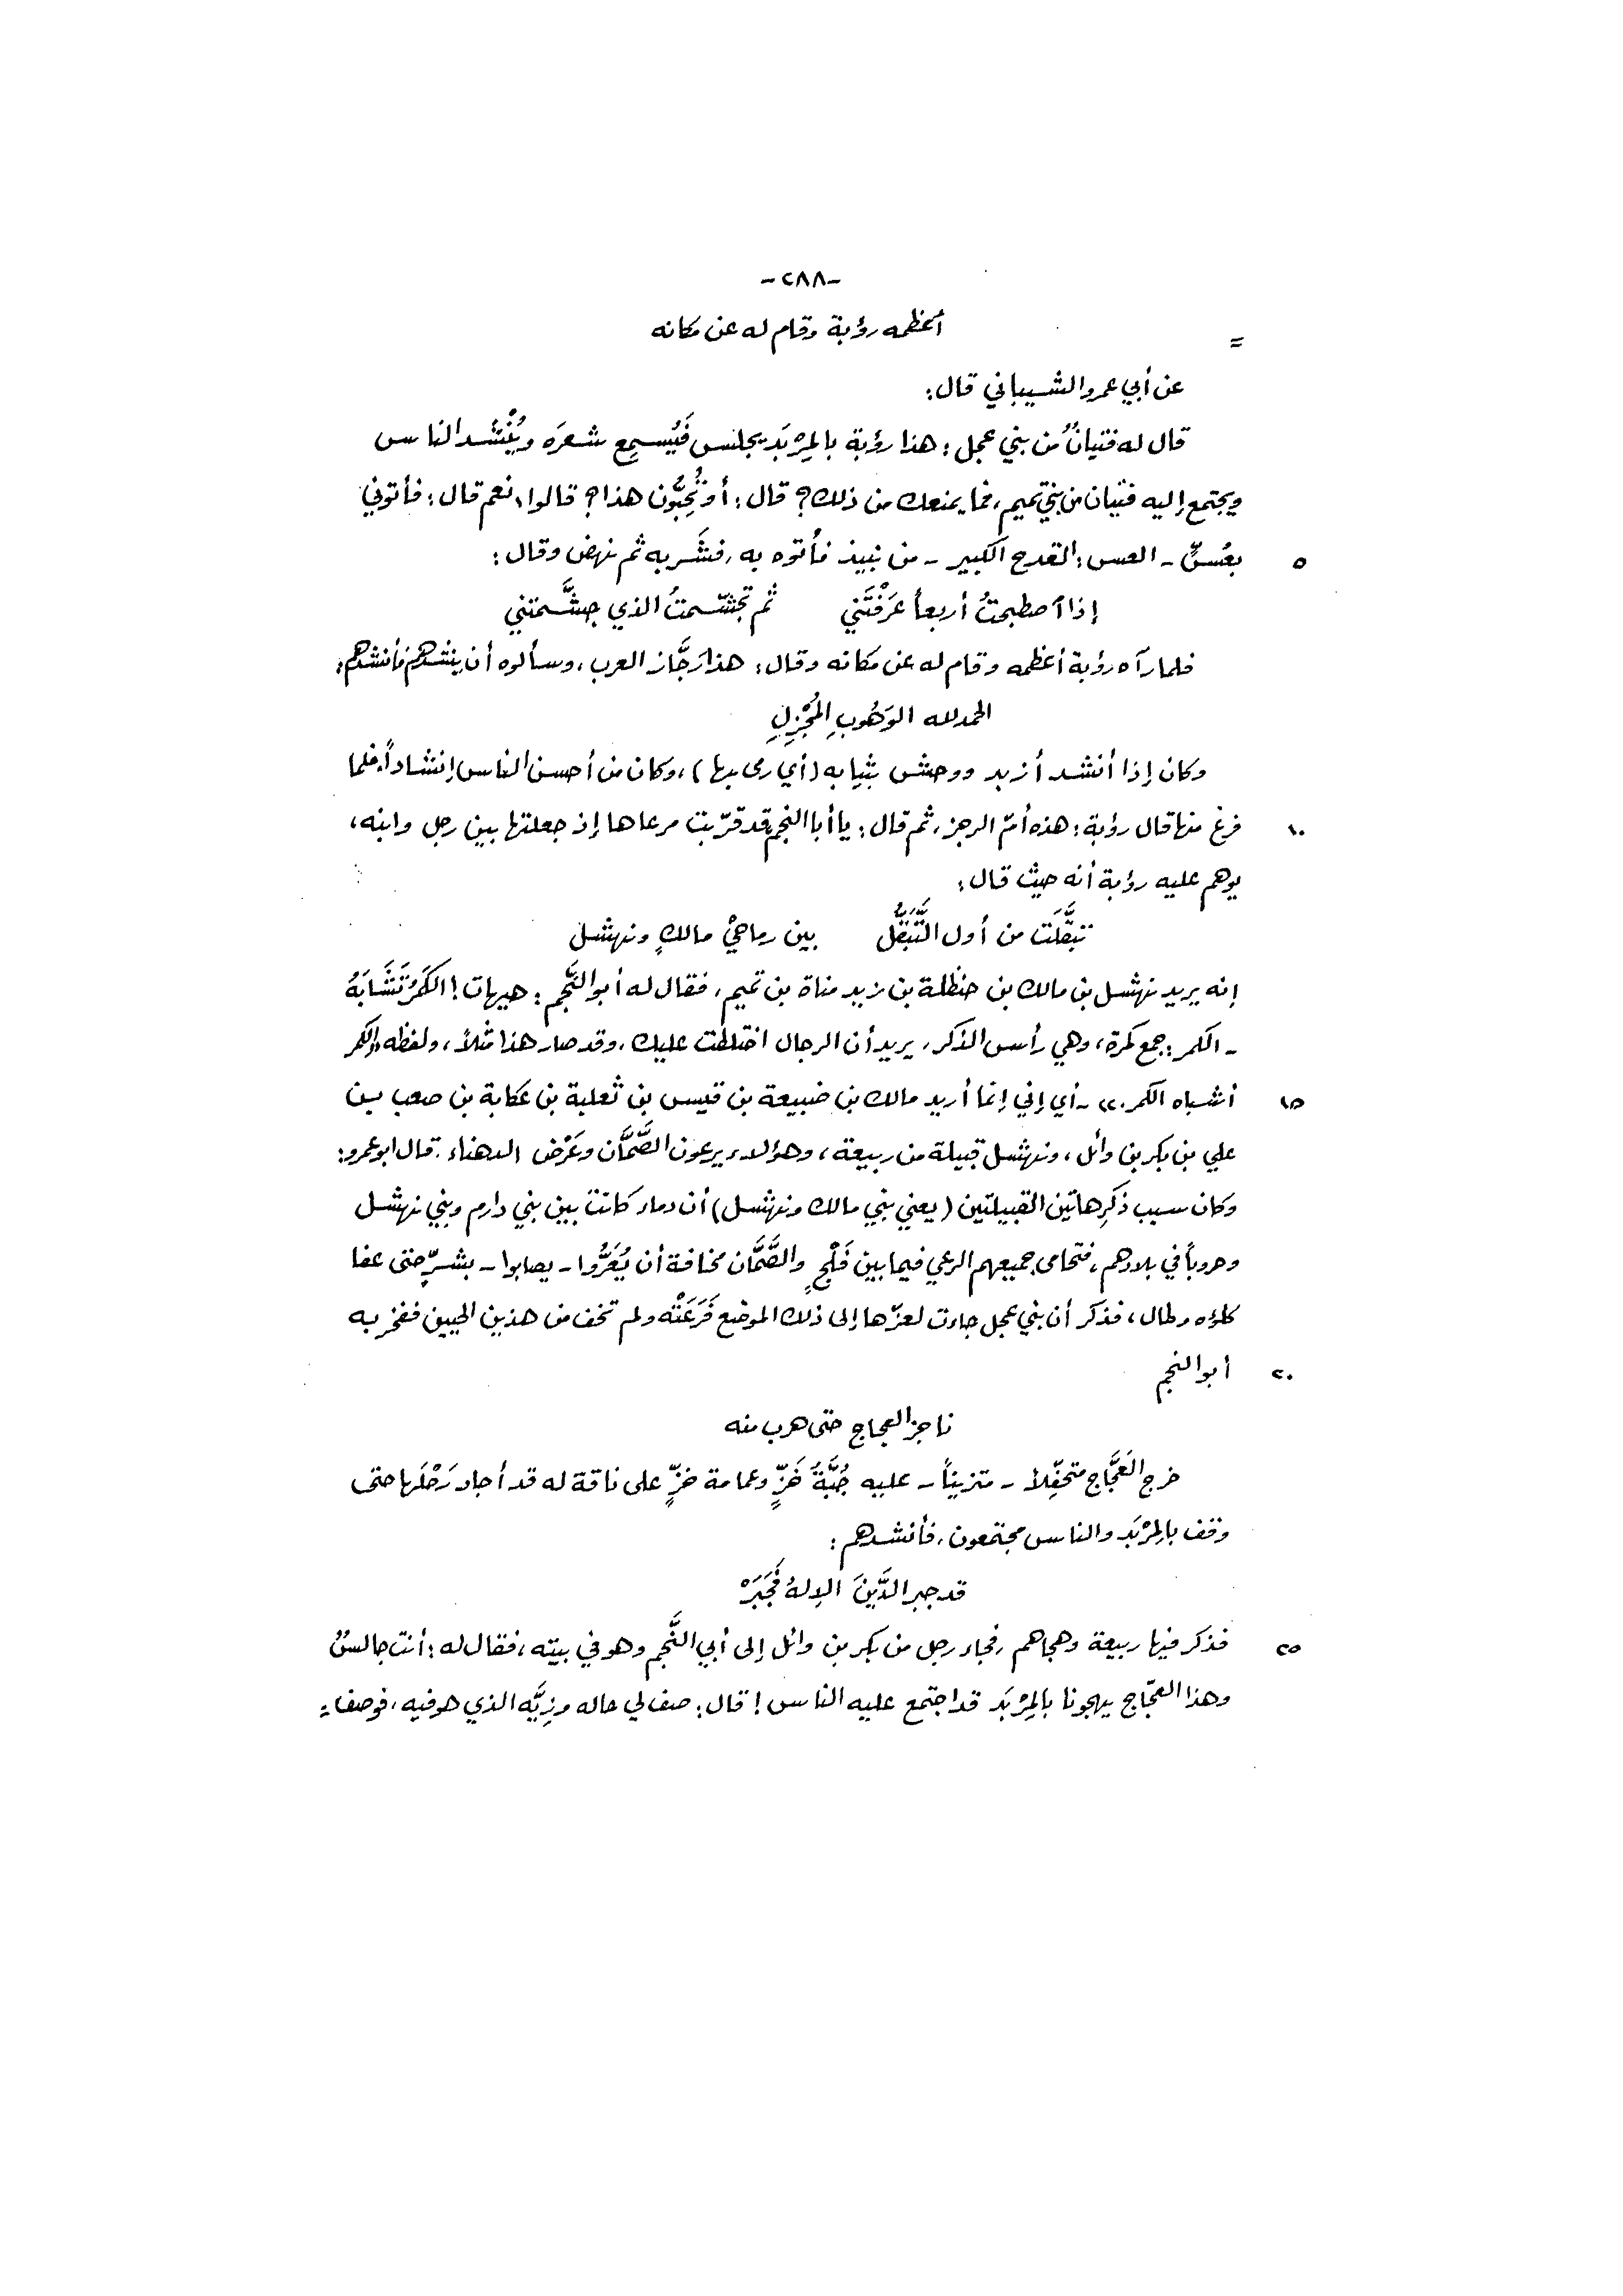 -٢٨٨-
= أعظمه رؤبة وقام له عن مكانه
عن أبي عمرو الشيباني قال:
قال له فتيانٌ من بني عجل: هذا رؤبة بالمِرْبَد يجلس فَيُسمِع شعرَه ويُنْشد الناس
ويجتمع إليه فتيان من بني تميم، فما يمنعك من ذلك؟ قال: أوَتُحِبُّون هذا؟ قالوا، نعم قال: فأتوني
٥ بعُسٍّ - العس: القدح الكبير - من نبيذ فأتوه به، فشَربه ثم نهض وقال:
إذا آصطبحتُ أربعاً عَرَفْتَني ثُم تجشّمتُ الذي جشَّمتني
فلما رآه رؤبة أعظمه وقام له عن مكانه وقال: هذا رَجَّاز العرب، وسألوه أن ينشدهم فأنشدهم:
الحمد لله الوَهُوبِ المُجْزِلِ
وكان إذا أنشد أزبد ووحش بثيابه (أي رمى بها)، وكان من أحسن الناس إنشاداً، فلما
١٠ فرغ منها قال رؤبة: هذه أمّ الرجز، ثم قال: يا أبا النجم قد قرّبت مرعاها إذ جعلتها بين رجل وابنه،
يوهم عليه رؤبة أنه حيث قال:
تبقَّلَت من أول التَّبَقُّل بين رماحيْ مالكٍ ونهشل
إنه يريد نهشل بن مالك بن حنظلة بن زيد مناة بن تميم، فقال له أبو النَّجم: هيهات! الكَمَرُ تَشَابَهُ
- الكمر: جمع كمرة، وهي رأس الذكر، يريد أن الرجال اختلطت عليك، وقد صار هذا مثلاً، ولفظه «الكمر
١٥ أشباه الكمر.» - أي إني إنما أريد مالك بن ضبيعة بن قيس بن ثعلبة بن عكابة بن صعب بن
علي بن بكر بن وائل، ونهشل قبيلة من ربيعة، وهؤلاء يرعون الصَّمَّان وعَرْض الدهناء. قال ابو عمرو:
وكان سبب ذكرِ هاتين القبيلتين (يعني بني مالك ونهشل) أن دماء كانت بين بني دارم وبني نهشل
وحروباً في بلادهم، فتحامى جميعهم الرعي فيما بين فَلْجٍ والصَّمَّان مخافة أن يُعَرُّوا - يصابوا - بشرٍّ حتى عفا
كلؤه وطال، فذكر أن بني عجل جاءت لعزّها إلى ذلك الموضع فَرَعَتْه ولم تخف من هذين الحيين ففخر به
٢٠ أبو النجم
ناجز العجاج حتى هرب منه
خرج العَجَّاج متحفّلاً - متزيناً - عليه جُبَّةُ خَزٍّ وعمامة خزٍّ على ناقة له قد أجاد رَحْلَها حتى
وقف بالمِرْبَد والناس مجتمعون، فأنشدهم:
قد جبر الدِّينَ الإلهُ فَجَبَرْ
٢٥ فذكر فيها ربيعة وهجاهم، فجاء رجل من بكر بن وائل إلى أبي النَّجم وهو في بيته، فقال له: أنت جالسٌ
وهذا العجّاج يهجونا بالمِرْبَد قد اجتمع عليه الناس! قال: صف لي حاله وزِيَّه الذي هو فيه، فوصف =